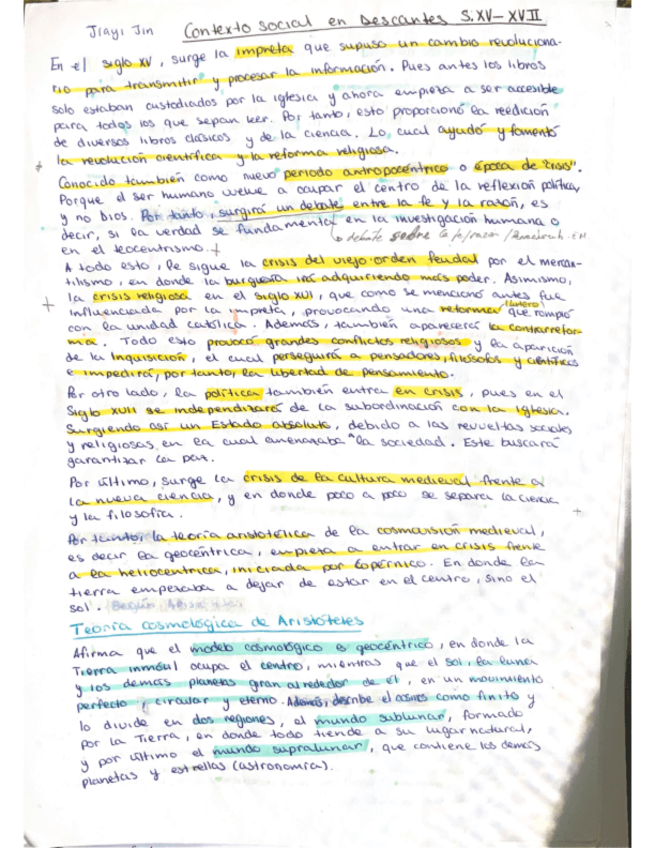 Jiayi Jin
Contexto social en Descartes S.XV-XVII
En el siglo XV, surge la impreta que supuso un cambio revoluciona-
rio para transmitir y procesar la información. Pues antes los libros
solo estaban custodiados por la iglesia y ahora empieza a ser accesible
para todos los que sepan leer. Por tanto, esto proporcionó la reedición
de diversos libros clásicos y de la ciencia. Lo cual ayudó y fomentó
la revolución científica y la reforma religiosa.
Conocido también como nuevo periodo antropocéntrico o época de "crisis".
Porque el ser humano vuelve a ocupar el centro de la reflexión política,
y no Dios. Por tanto, surgirá un debate entre la fe y la razón, es
decir, si la verdad se fundamenta en la investigación humana o
en el teocentrismo.
debate sobre la fe/razon /
A todo esto, le sigue la crisis del viejo orden feudal por el mercan-
tilismo, en donde la burguesía irá adquiriendo más poder. Asimismo,
la crisis religiosa en el siglo XVII, que como se mencionó antes fue
influenciada por la impreta, provocando una reforma (lutero) que rompió
con la unidad católica. Además, también aparecerá la contrarrefor-
ma. Todo esto provocó grandes conflictos religiosos y la aparición
de la Inquisición, el cual perseguirá a pensadores, filósofos y científicos
e impedirá, por tanto, la libertad de pensamiento.
Por otro lado, la política también entra en crisis, pues en el
Siglo XVII se independizará de la subordinación con la Iglesia.
Surgiendo así un Estado absoluto, debido a las revueltas sociales
y religiosas, en la cual amenazaba la sociedad. Este buscará
garantizar la paz.
Por último, surge la crisis de la cultura medieval frente a
la nueva ciencia, y en donde poco a poco se separa la ciencia
y la filosofía.
Por tanto, la teoría aristotélica de la cosmovisión medieval,
es decir la geocéntrica, empieza a entrar en crisis frente
a la heliocentrica, iniciada por Copérnico. En donde la
tierra empezaba a dejar de estar en el centro, sino el
sol.
Teoría cosmológica de Aristóteles
Afirma que el modelo cosmológico es geocéntrico, en donde la
Tierra inmóvil ocupa el centro, mientras que el sol, la luna
y los demás planetas giran alrededor de él, en un movimiento
perfecto, circular y eterno. Además, describe el cosmos como finito y
lo divide en dos regiones, al mundo sublunar, formado
por la Tierra, en donde todo tiende a su lugar natural,
y por último el mundo supralunar, que contiene los demás
planetas y estrellas (astronomía).